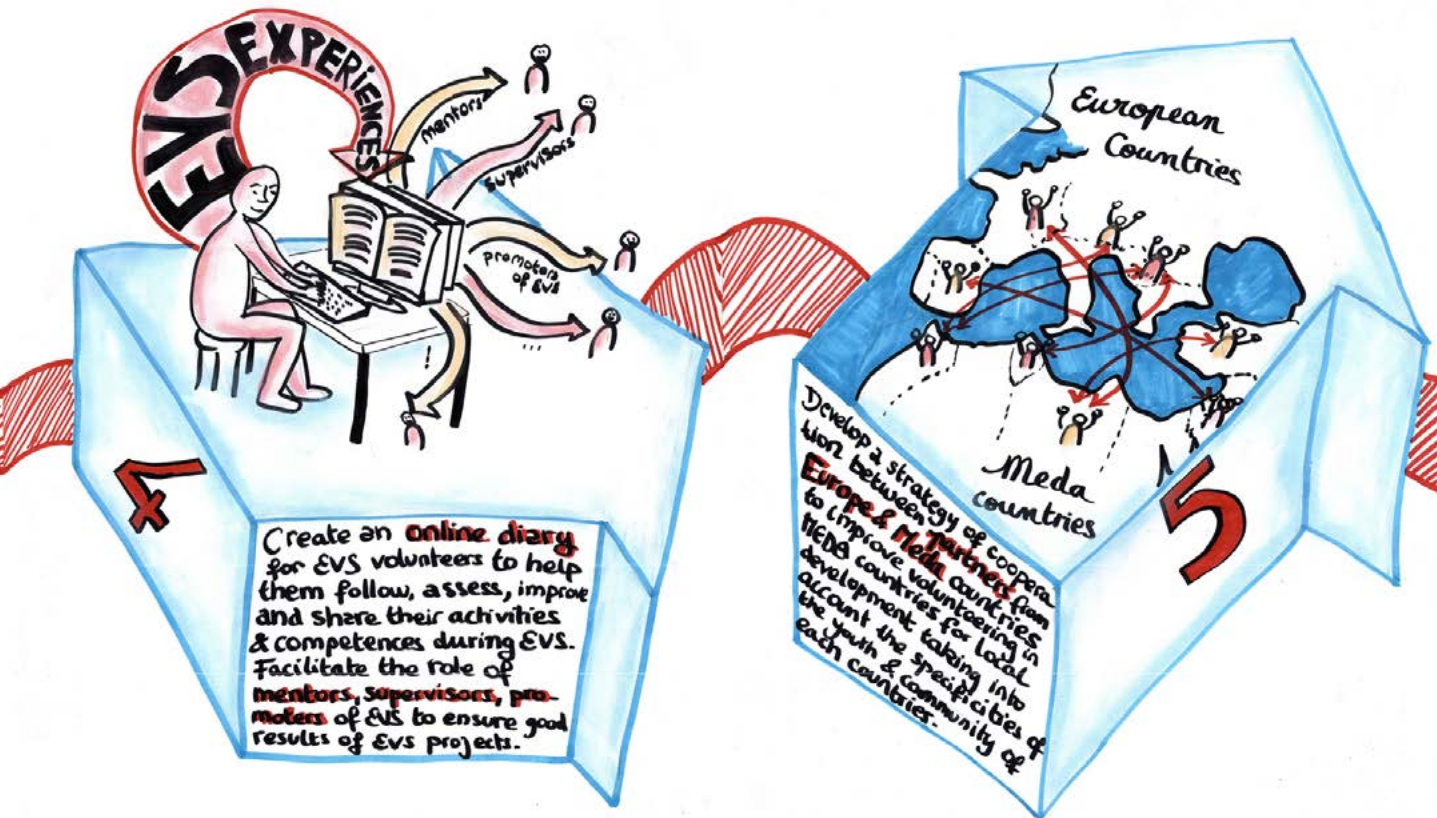 EVS EXPERIENCES
mentors
supervisors
promoters
of EVS
...
4
Create an online diary
for EVS volunteers to help
them follow, assess, improve
and share their activities
& competences during EVS.
Facilitate the role of
mentors, supervisors, pro-
moters of EVS to ensure good
results of EVS projects.
European
Countries
Meda
countries
5
Develop a strategy of coopera
tion between partners from
Europe & Meda countries
to improve volunteering in
MEDA countries for local
development taking into
account the specificities of
the youth & community of
each countries.